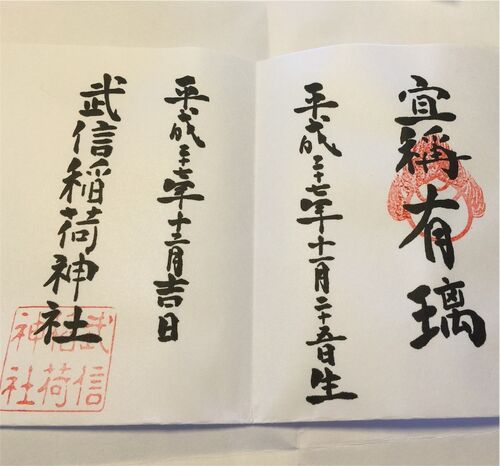 宜稱有璃
平成二十七年十一月二十五日生
平成二十七年十二月吉日
武信稲荷神社
武信稲荷神社